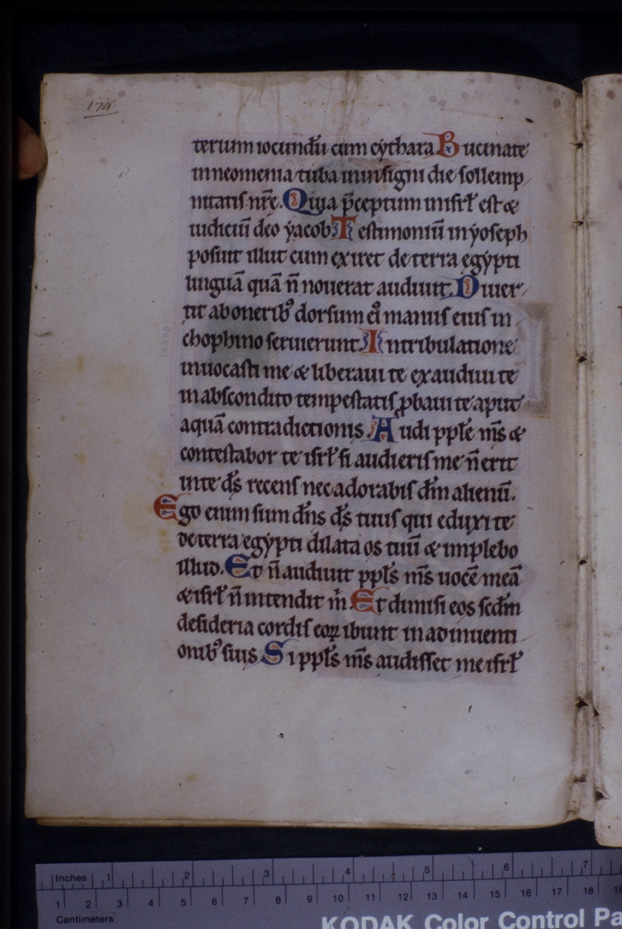 179.
terium iocundũ cum cythara Bucinate
in neomenia tuba in insigni die sollemp
nitatis nr̃e. Quia p̃ceptum in isrl̃ est &
iudiciũ deo yacob Testimoniũ in yoseph
posuit illut cum exiret de terra egypti
linguã quã ñ nouerat audiuit. Diuer
tit ab onerib⁹ dorsum ei⁹ manus eius in
chophino seruierunt. In tribulatione
inuocasti me & liberaui te exaudiui te
in abscondito tempestatis ꝓbaui te aput
aquã contradictionis. Audi pple m̃s &
contestabor te isrl̃ si audieris me ñ erit
in te d̃s recens nec adorabis dm̃ alienũ.
Ego enim sum dñs d̃s tuus qui eduxi te
de terra egypti dilata os tuũ & implebo
illud. Et ñ audiuit ppl̃s m̃s uocẽ meã
& isrl̃ ñ intendit m̃. Et dimisi eos sedm̃
desideria cordis eoꝝ ibunt in adinuenti
onib⁹ suis Si ppl̃s m̃s audisset me isrl̃
Inches 1 2 3 4 5 6 7
1 2 3 4 5 6 7 8 9 10 11 12 13 14 15 16 17 18
Centimeters
KODAK Color Control Pa